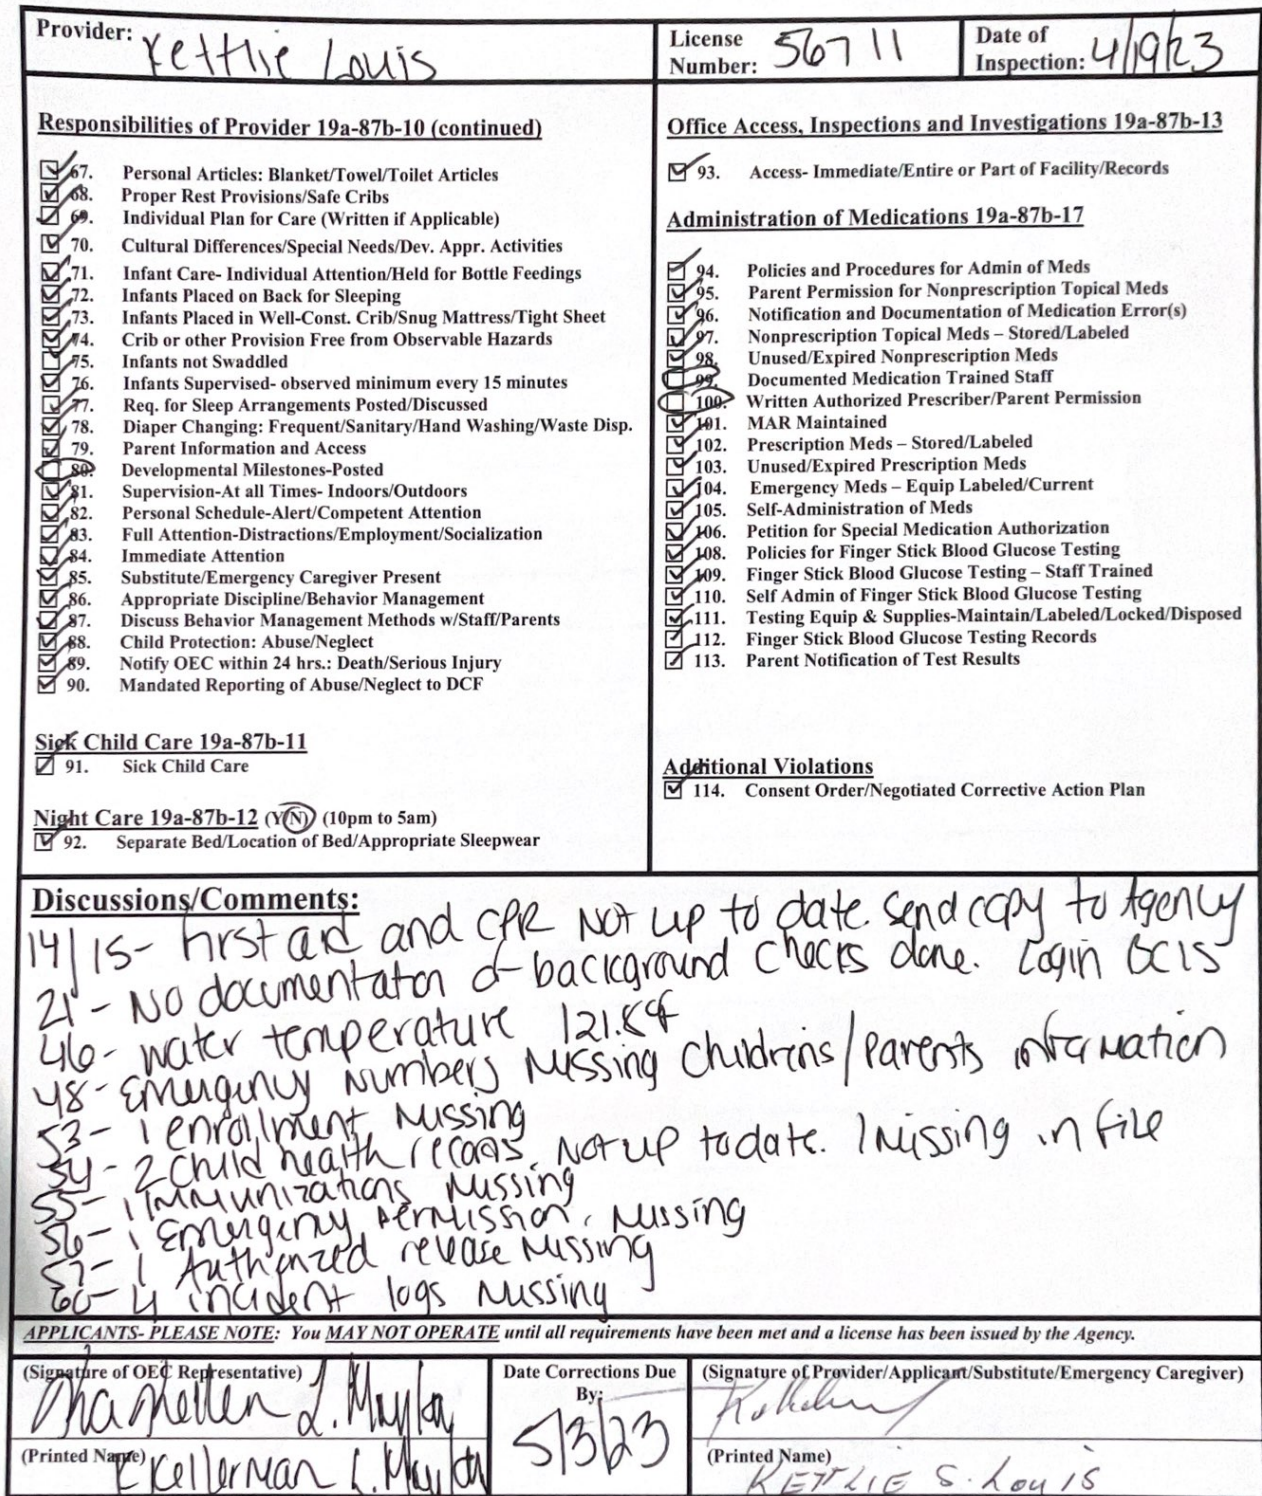 Provider: Kettlie Louis
License Number: 56711
Date of Inspection: 4/19/23
Responsibilities of Provider 19a-87b-10 (continued)
67. Personal Articles: Blanket/Towel/Toilet Articles
68. Proper Rest Provisions/Safe Cribs
69. Individual Plan for Care (Written if Applicable)
70. Cultural Differences/Special Needs/Dev. Appr. Activities
71. Infant Care- Individual Attention/Held for Bottle Feedings
72. Infants Placed on Back for Sleeping
73. Infants Placed in Well-Const. Crib/Snug Mattress/Tight Sheet
74. Crib or other Provision Free from Observable Hazards
75. Infants not Swaddled
76. Infants Supervised- observed minimum every 15 minutes
77. Req. for Sleep Arrangements Posted/Discussed
78. Diaper Changing: Frequent/Sanitary/Hand Washing/Waste Disp.
79. Parent Information and Access
80. Developmental Milestones-Posted
81. Supervision-At all Times- Indoors/Outdoors
82. Personal Schedule-Alert/Competent Attention
83. Full Attention-Distractions/Employment/Socialization
84. Immediate Attention
85. Substitute/Emergency Caregiver Present
86. Appropriate Discipline/Behavior Management
87. Discuss Behavior Management Methods w/Staff/Parents
88. Child Protection: Abuse/Neglect
89. Notify OEC within 24 hrs.: Death/Serious Injury
90. Mandated Reporting of Abuse/Neglect to DCF
Sick Child Care 19a-87b-11
91. Sick Child Care
Night Care 19a-87b-12 (Y/N) (10pm to 5am)
92. Separate Bed/Location of Bed/Appropriate Sleepwear
Office Access, Inspections and Investigations 19a-87b-13
93. Access- Immediate/Entire or Part of Facility/Records
Administration of Medications 19a-87b-17
94. Policies and Procedures for Admin of Meds
95. Parent Permission for Nonprescription Topical Meds
96. Notification and Documentation of Medication Error(s)
97. Nonprescription Topical Meds – Stored/Labeled
98. Unused/Expired Nonprescription Meds
99. Documented Medication Trained Staff
100. Written Authorized Prescriber/Parent Permission
101. MAR Maintained
102. Prescription Meds – Stored/Labeled
103. Unused/Expired Prescription Meds
104. Emergency Meds – Equip Labeled/Current
105. Self-Administration of Meds
106. Petition for Special Medication Authorization
108. Policies for Finger Stick Blood Glucose Testing
109. Finger Stick Blood Glucose Testing – Staff Trained
110. Self Admin of Finger Stick Blood Glucose Testing
111. Testing Equip & Supplies-Maintain/Labeled/Locked/Disposed
112. Finger Stick Blood Glucose Testing Records
113. Parent Notification of Test Results
Additional Violations
114. Consent Order/Negotiated Corrective Action Plan
Discussions/Comments:
14/15- first aid and CPR Not up to date. send copy to Agency
21- No documentation of background checks done. Login BCIS
46- water temperature 121.8°F
48- Emergency Numbers Missing Childrens/Parents information
53- 1 enrollment Missing
54- 2 Child health records Not up to date. 1 Missing in file
55- 1 Immunizations Missing
56- 1 Emergency permission, Missing
57- 1 Authorized release Missing
60- 4 incident logs Missing
APPLICANTS- PLEASE NOTE: You MAY NOT OPERATE until all requirements have been met and a license has been issued by the Agency.
(Signature of OEC Representative)
Date Corrections Due By: 5/3/23
(Signature of Provider/Applicant/Substitute/Emergency Caregiver)
(Printed Name) Kellerman L.
(Printed Name) KETTLIE S. Louis